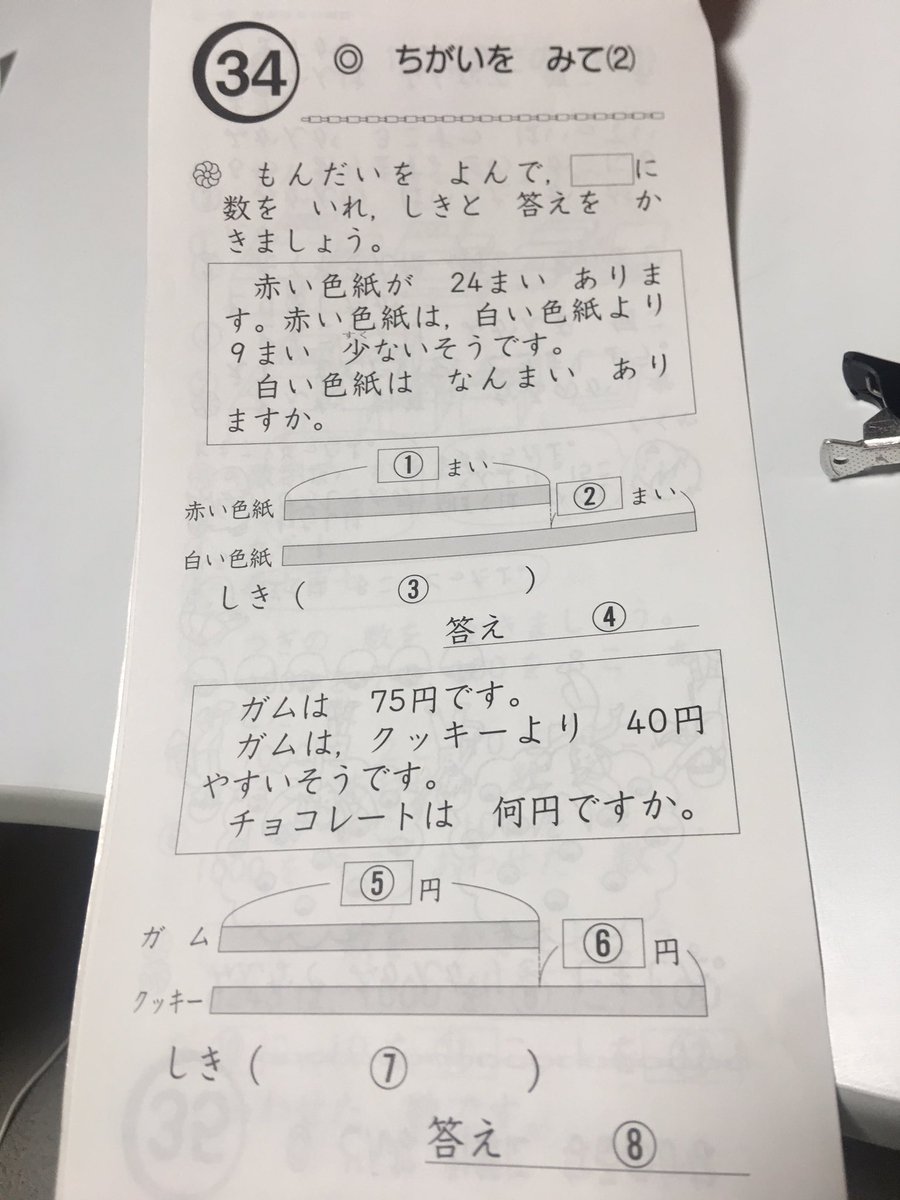 34 ◎ ちがいを みて(2)
もんだいを よんで, □に
数を いれ, しきと 答えを か
きましょう。
赤い色紙が 24まい ありま
す。赤い色紙は, 白い色紙より
すく
9まい 少ないそうです。
白い色紙は なんまい あり
ますか。
① まい
赤い色紙 ② まい
白い色紙
しき( ③ )
答え ④
ガムは 75円です。
ガムは, クッキーより 40円
やすいそうです。
チョコレートは 何円ですか。
⑤ 円
ガム ⑥ 円
クッキー
しき( ⑦ )
答え ⑧